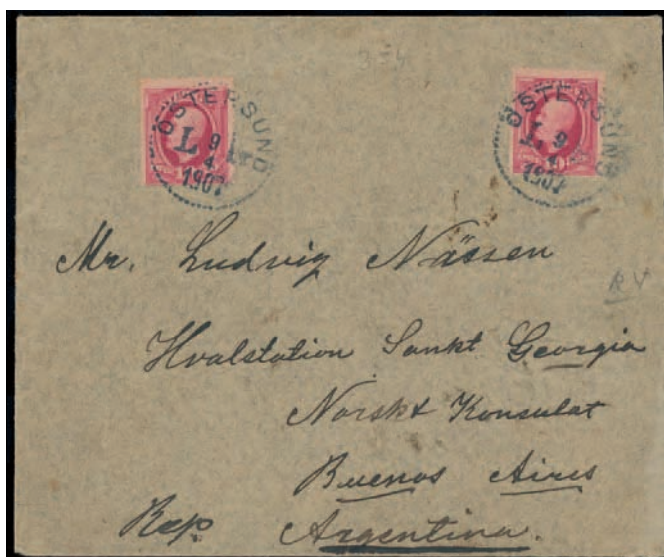 354
ÖSTERSUND
L 9
4
1907
ÖSTERSUND
L 9
4
1907
Mr. Ludvig Nässen
RV
Hvalstation Sankt Georgia
Norskt Konsulat
Buenos Aires
Rep Argentina.